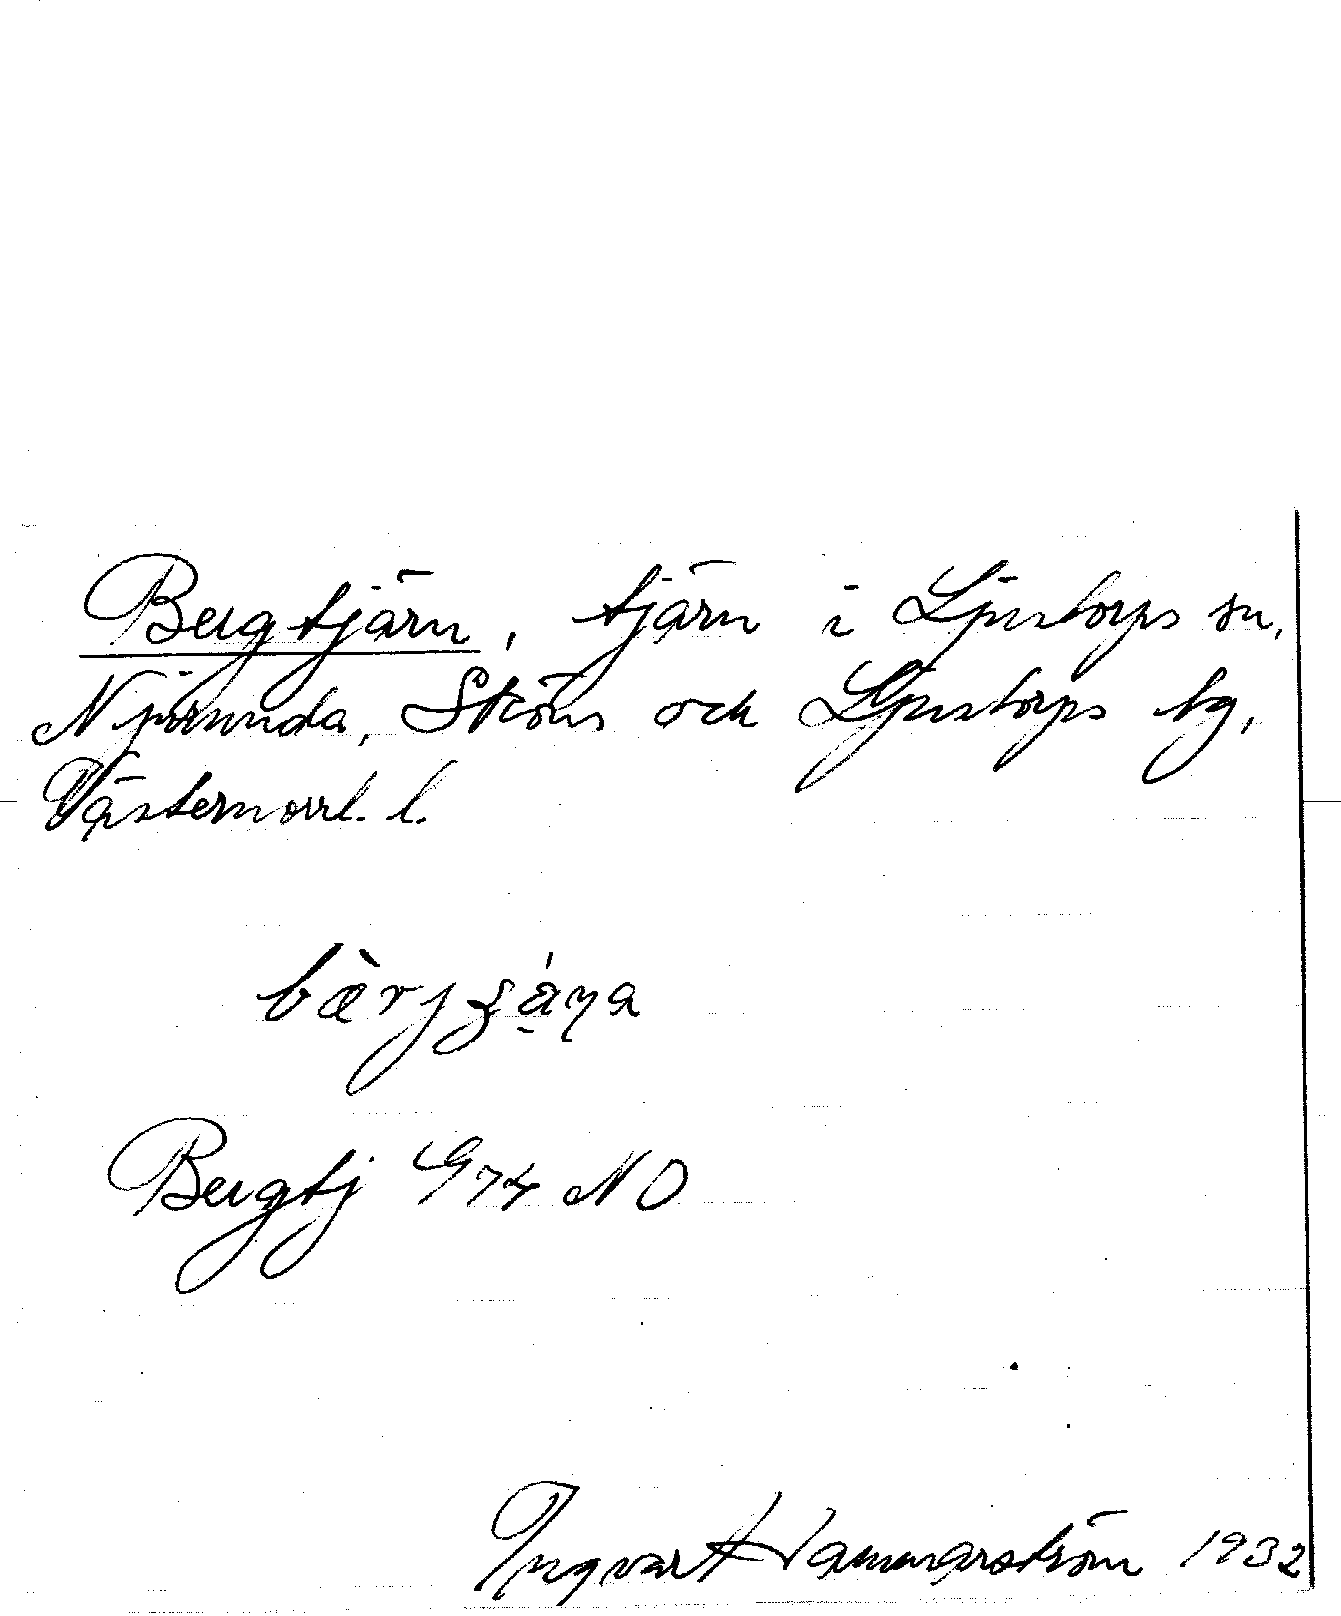 Bergtjärn, tjärn i Ljustorps sn,
Njurunda, Sköns och Ljustorps tg,
Västernorrl. l.
Bergtj G74 NO
Ingvar Hammarström 1932